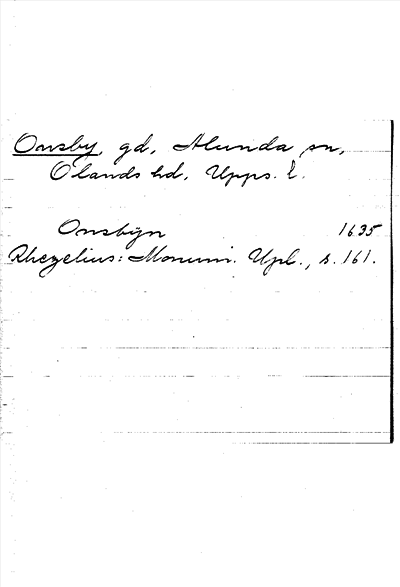 Onsby, gd, Alunda sn,
Olands hd, Upps. l.
Onsbÿn 1635
Rhezelius: Monum. Upl., s. 161.